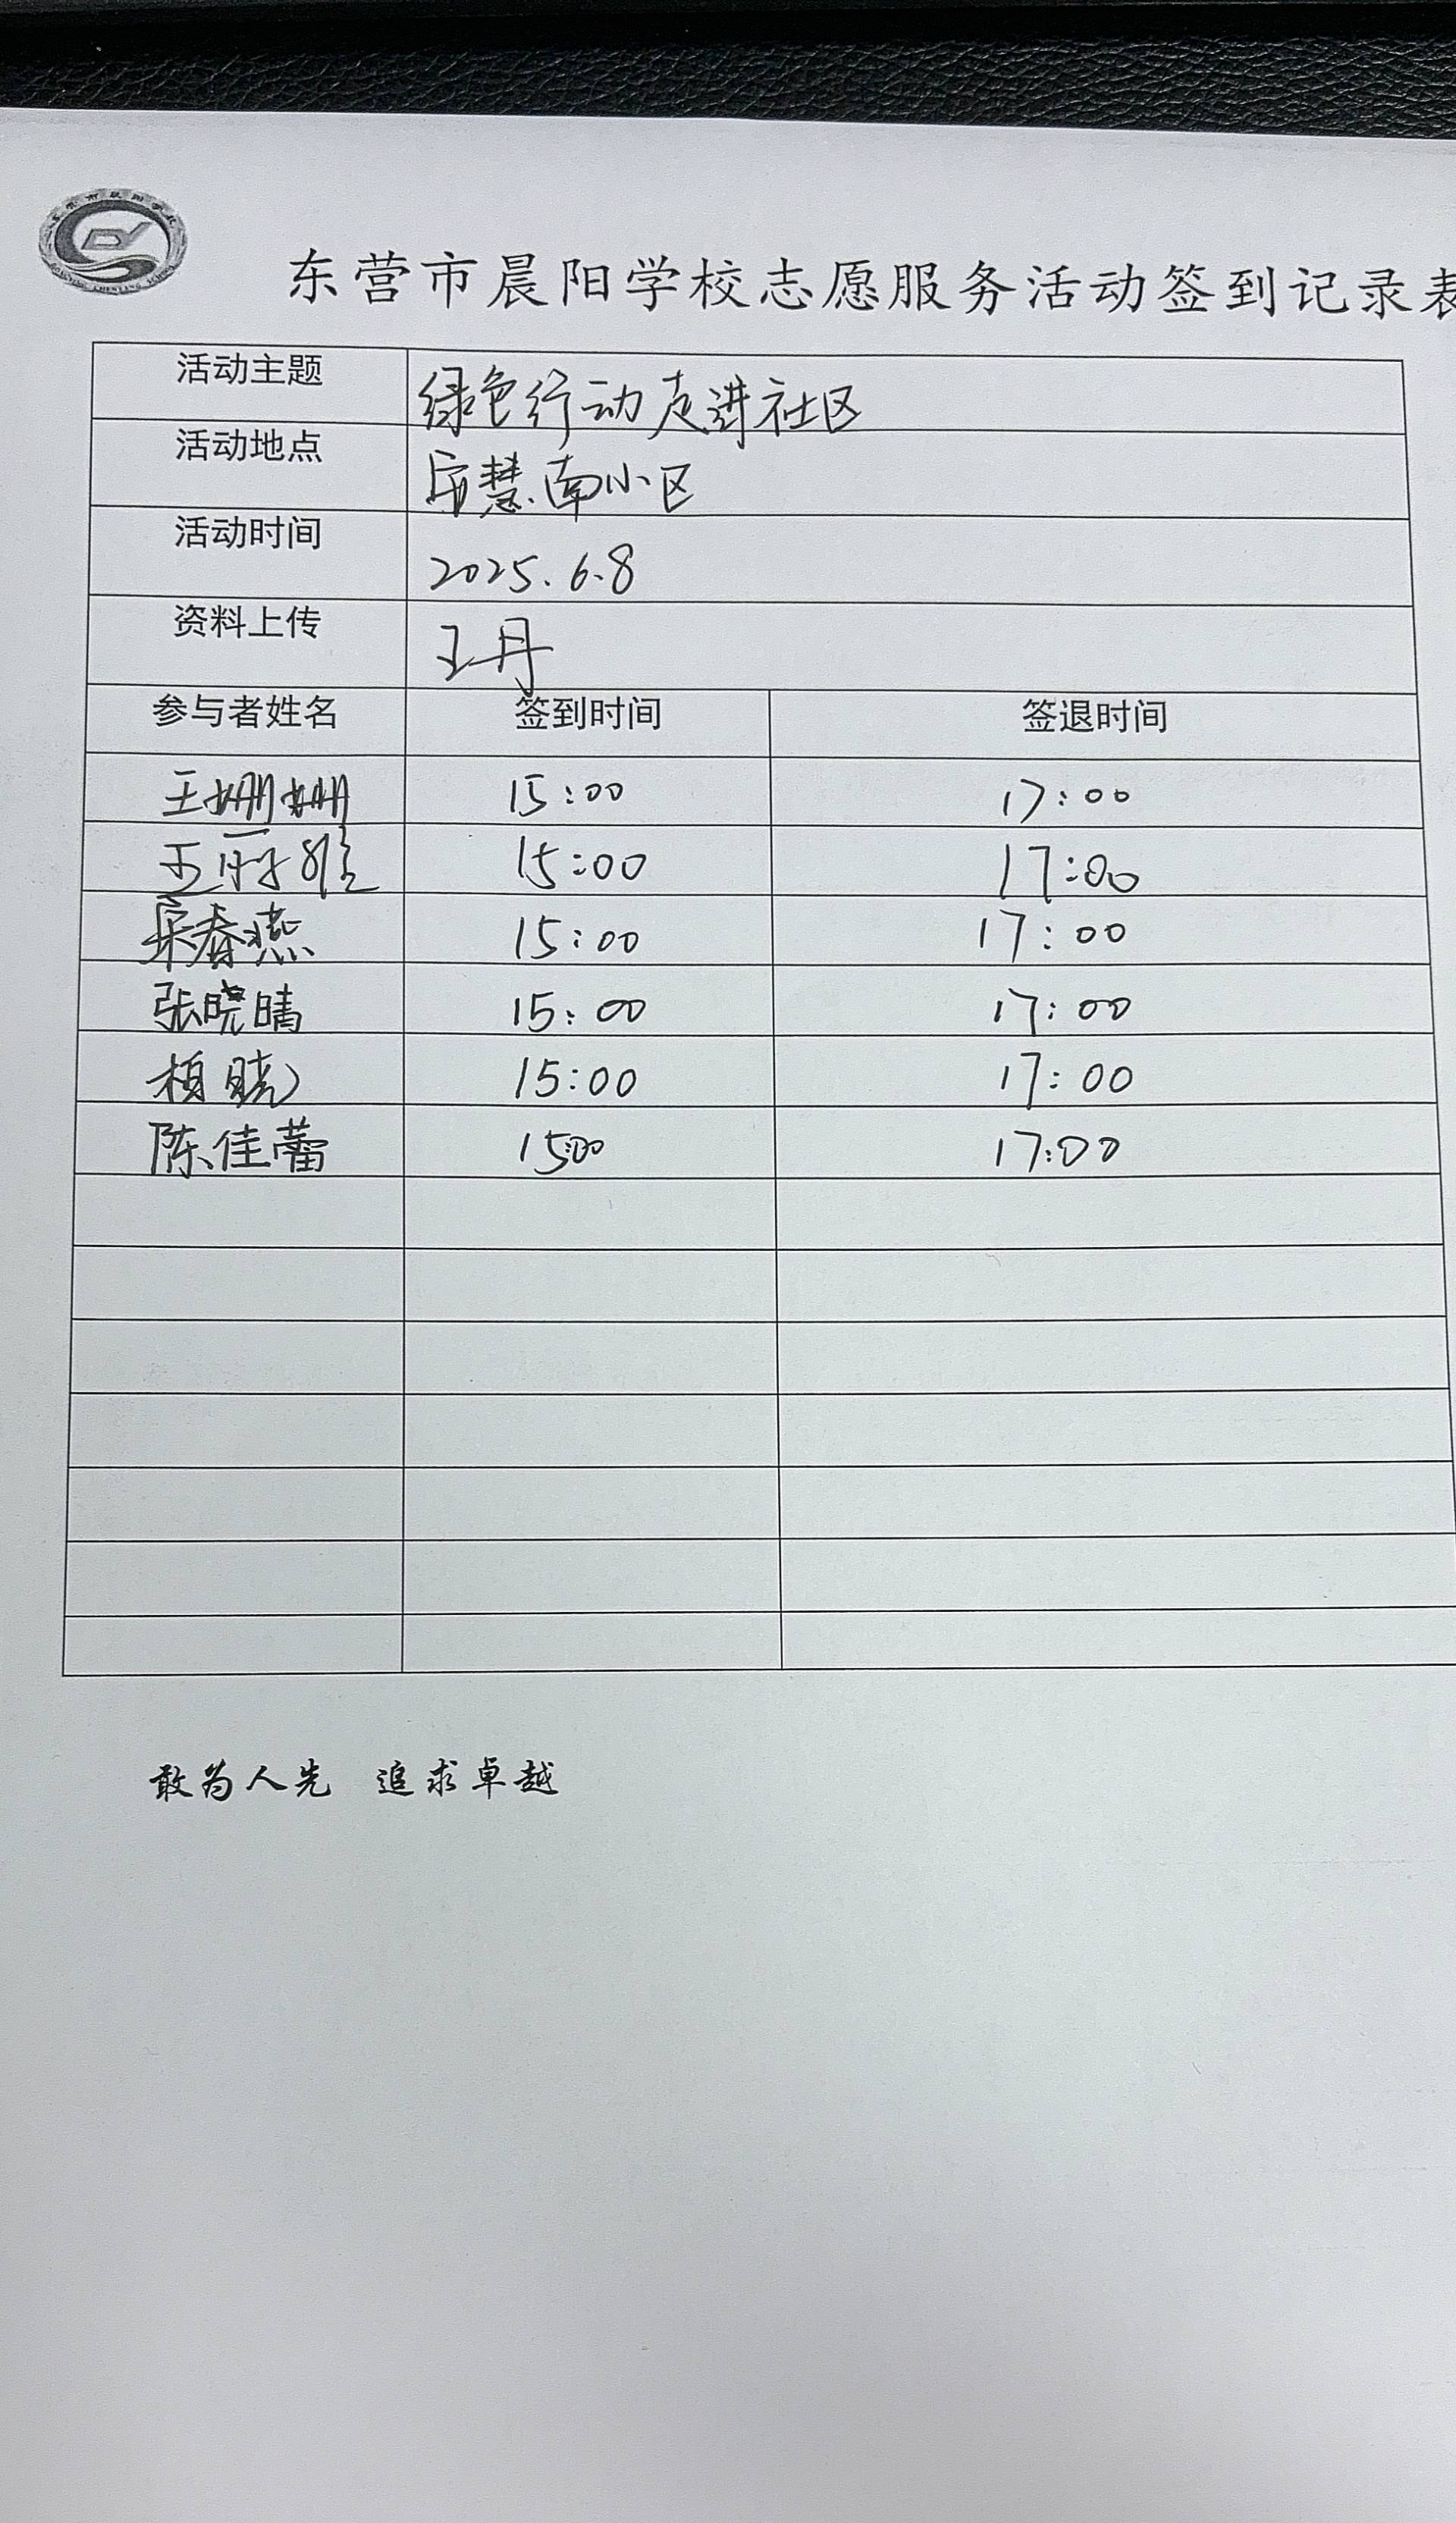 东营市晨阳学校志愿服务活动签到记录表
活动主题 绿色行动走进社区
活动地点 安慧南小区
活动时间 2025.6.8
资料上传 王丹
参与者姓名 签到时间 签退时间
王姗姗 15:00 17:00
王 15:00 17:00
宋春燕 15:00 17:00
张晓晴 15:00 17:00
15:00 17:00
陈佳蕾 15:00 17:00
敢为人先 追求卓越